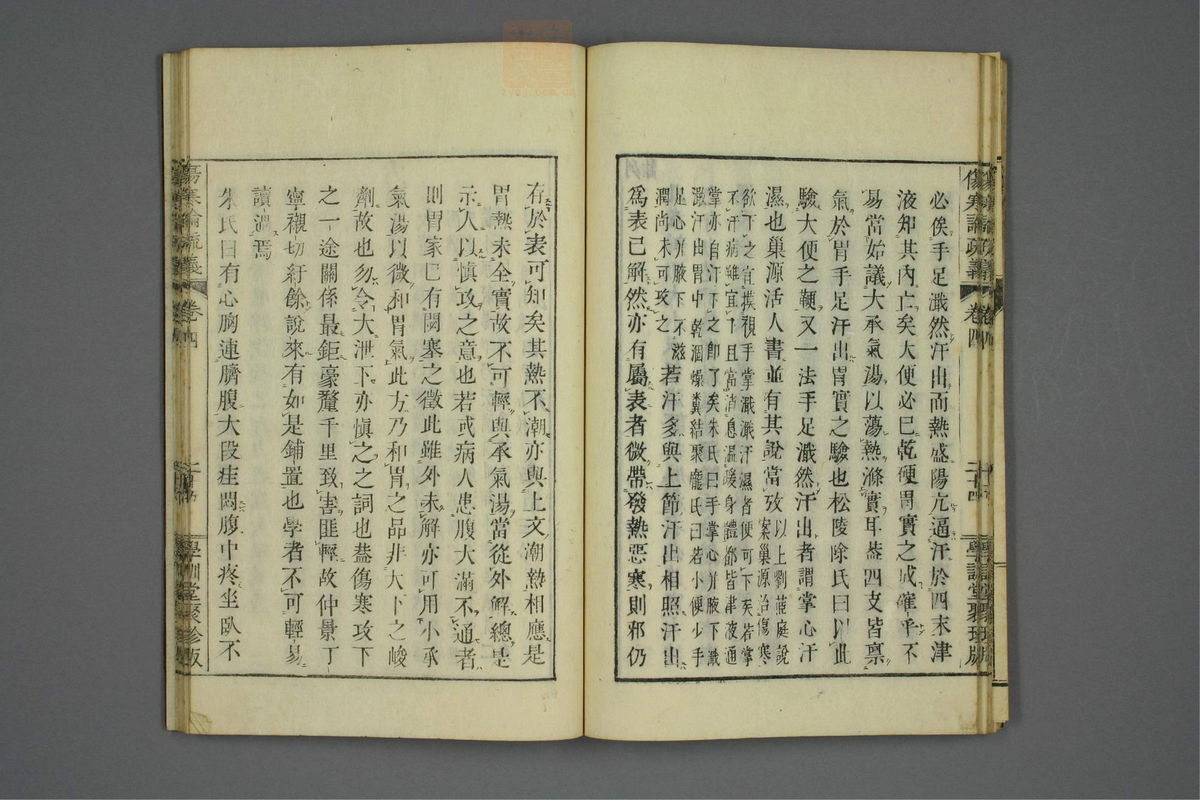 必俟手足濈然汗出而熱盛陽亢逼汗於四末津
液知其內亡矣大便必已乾硬胃實之成確乎不
易當始議大承氣湯以蕩熱滌實耳蓋四支皆禀
氣於胃手足汗出胃實之驗也松陵徐氏曰以此
驗大便之鞕又一法手足濈然汗出者謂掌心汗
濕也巢源活人書並有其說當攷以上劉茝庭說
案巢源治傷寒
欲下之宜摸視手掌濈濈汗濕者便可下矣若掌
不汗病雖宜下且當消息溫暖身體都皆津液通
掌亦自汗下之卽了矣朱氏曰手掌心幷腋下濈
濈汗出胃中乾涸燥糞結聚龐氏曰若小便少手
足心幷腋下不滋
潤尚未可攻之
若汗多與上節汗出相照汗出
爲表已解然亦有屬表者微帶發熱惡寒則邪仍
傷寒論疏義
卷四
二十四
學訓堂聚珍版
存於表可知矣其熱不潮亦與上文潮熱相應是
胃熱未全實故不可輕與承氣湯當從外解總是
示人以愼攻之意也若或病人患腹大滿不通者
則胃家已有閼塞之徵此雖外未解亦可用小承
氣湯以微和胃氣此方乃和胃之品非大下之峻
劑故也勿令大泄下亦愼之之詞也蓋傷寒攻下
之一途關係最鉅豪釐千里致害匪輕故仲景丁
寧襯切紆餘說來有如是鋪置也學者不可輕易
讀過焉
朱氏曰有心胸連臍腹大段痞悶腹中疼坐臥不
傷寒論疏義
卷四
學訓堂聚珍版